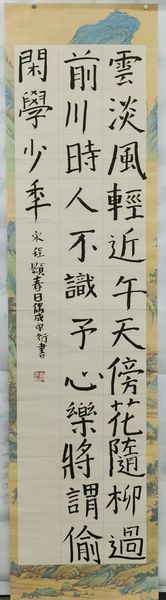 雲淡風輕近午天傍花隨柳過
前川時人不識予心樂將謂偷
閑學少年
宋程顥春日偶成 衍書